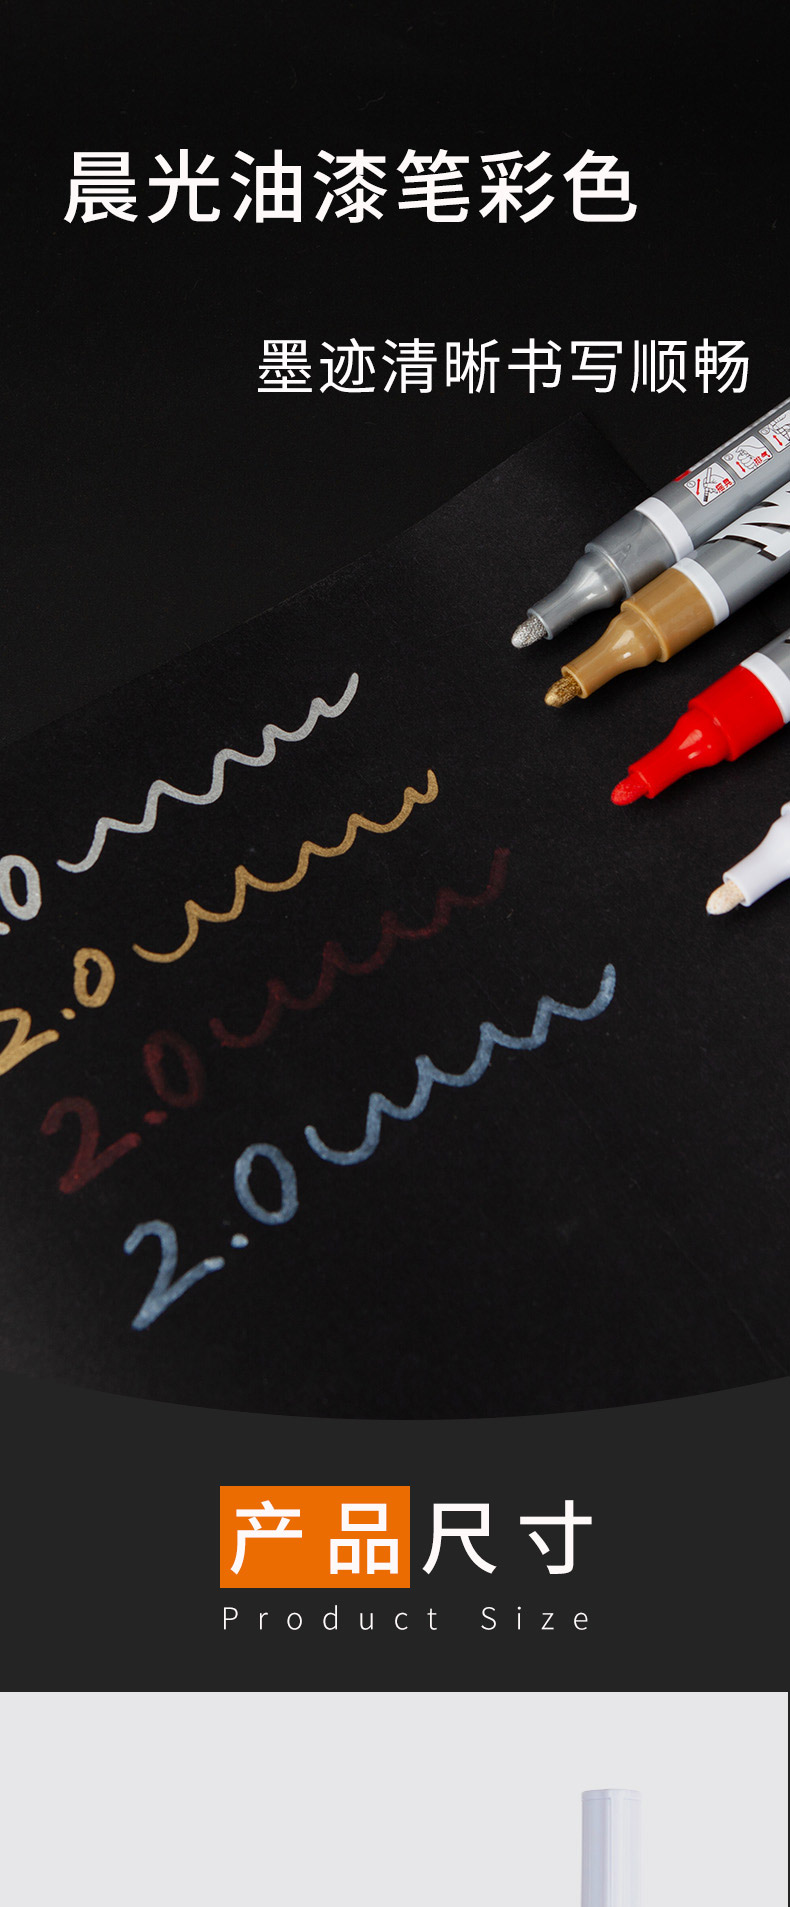 晨光油漆笔彩色
墨迹清晰书写顺畅
.0
2.0
2.0
2.0
产品尺寸
Product Size